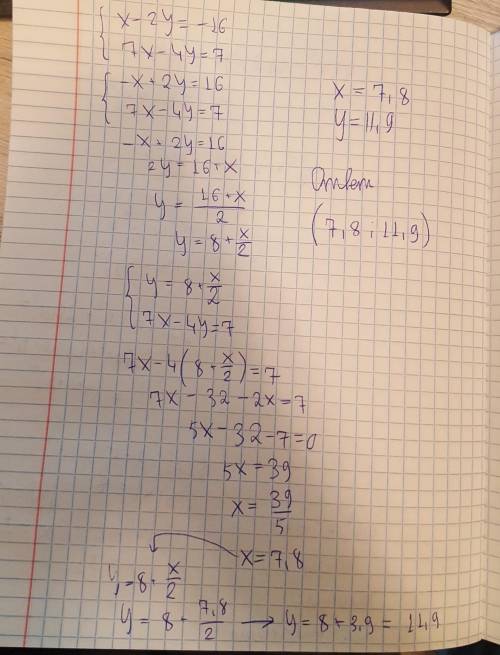 { x - 2y = -16
7x - 4y = 7
{ -x + 2y = 16
7x - 4y = 7
-x + 2y = 16
2y = 16 + x
y = (16 + x)/2
y = 8 + x/2
{ y = 8 + x/2
7x - 4y = 7
7x - 4(8 + x/2) = 7
7x - 32 - 2x = 7
5x - 32 - 7 = 0
5x = 39
x = 39/5
x = 7,8
y = 8 + x/2
y = 8 + 7,8/2 → y = 8 + 3,9 = 11,9
x = 7,8
y = 11,9
Ответ
(7,8 ; 11,9)